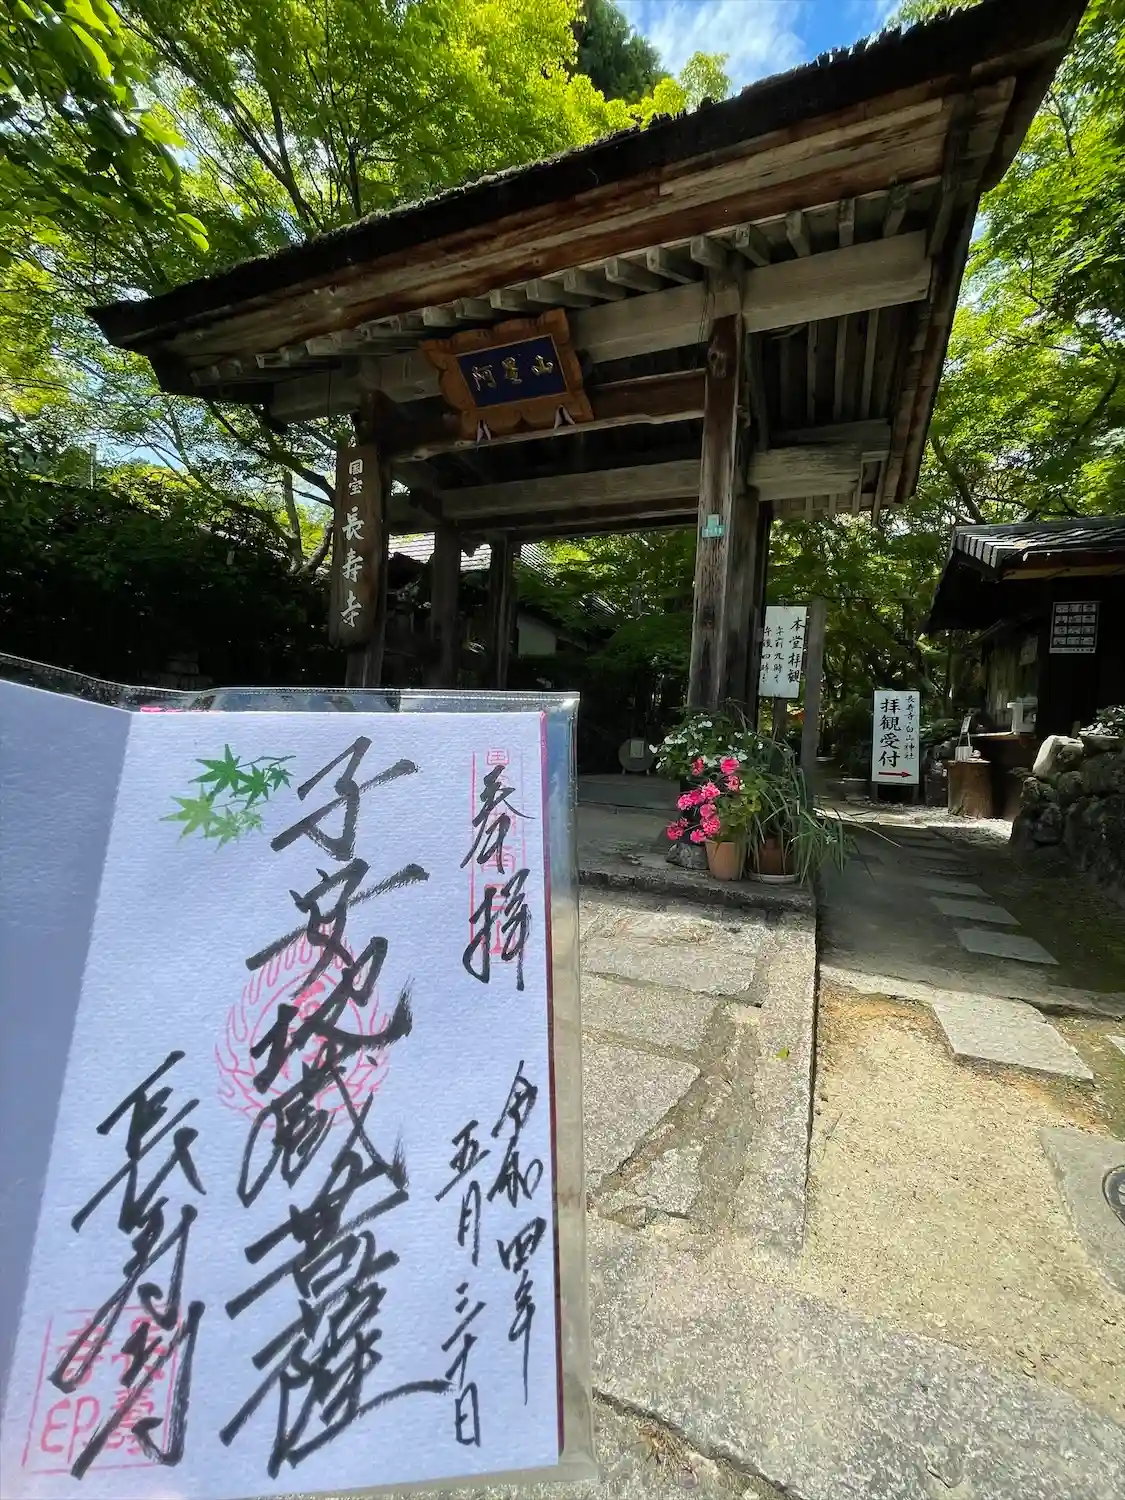 阿星山
国宝 長寿寺
本堂拝観
午前九時
午後四時
長寿寺・白山神社
拝観受付
奉拝
令和四年
五月三十日
子安地蔵菩薩
長寿寺